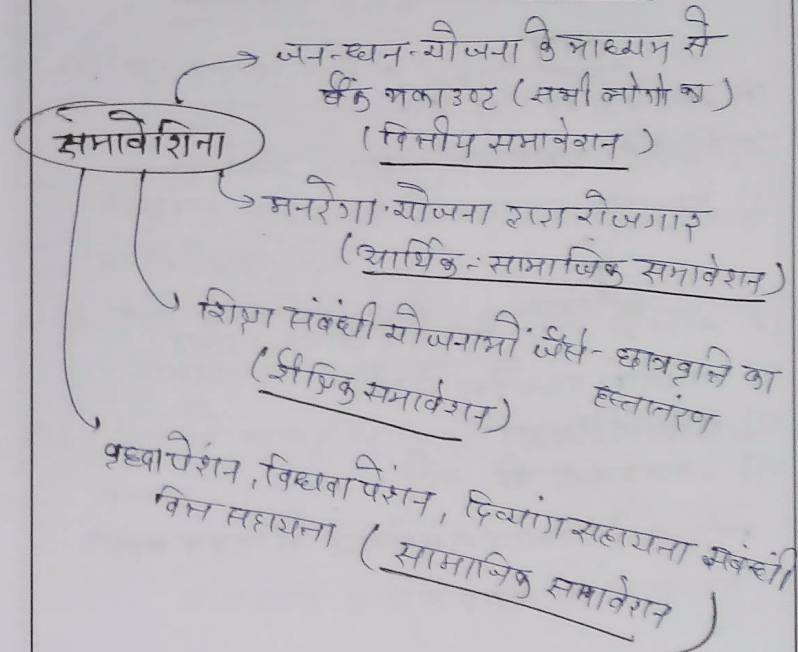 जन-धन-योजना के माध्यम से
बैंक अकाउण्ट (सभी लोगो का)
समावेशिता
(वित्तीय समावेशन)
मनरेगा-योजना द्वारा रोजगार
(आर्थिक-सामाजिक समावेशन)
शिक्षा संबंधी योजनाओं जैसे- छात्रवृत्ति का
हस्तातंरण
(शैक्षिक समावेशन)
वृध्दा पेंशन, विधवा पेंशन, दिव्यांग सहायता संबंधी
वित्त सहायता (सामाजिक समावेशन)